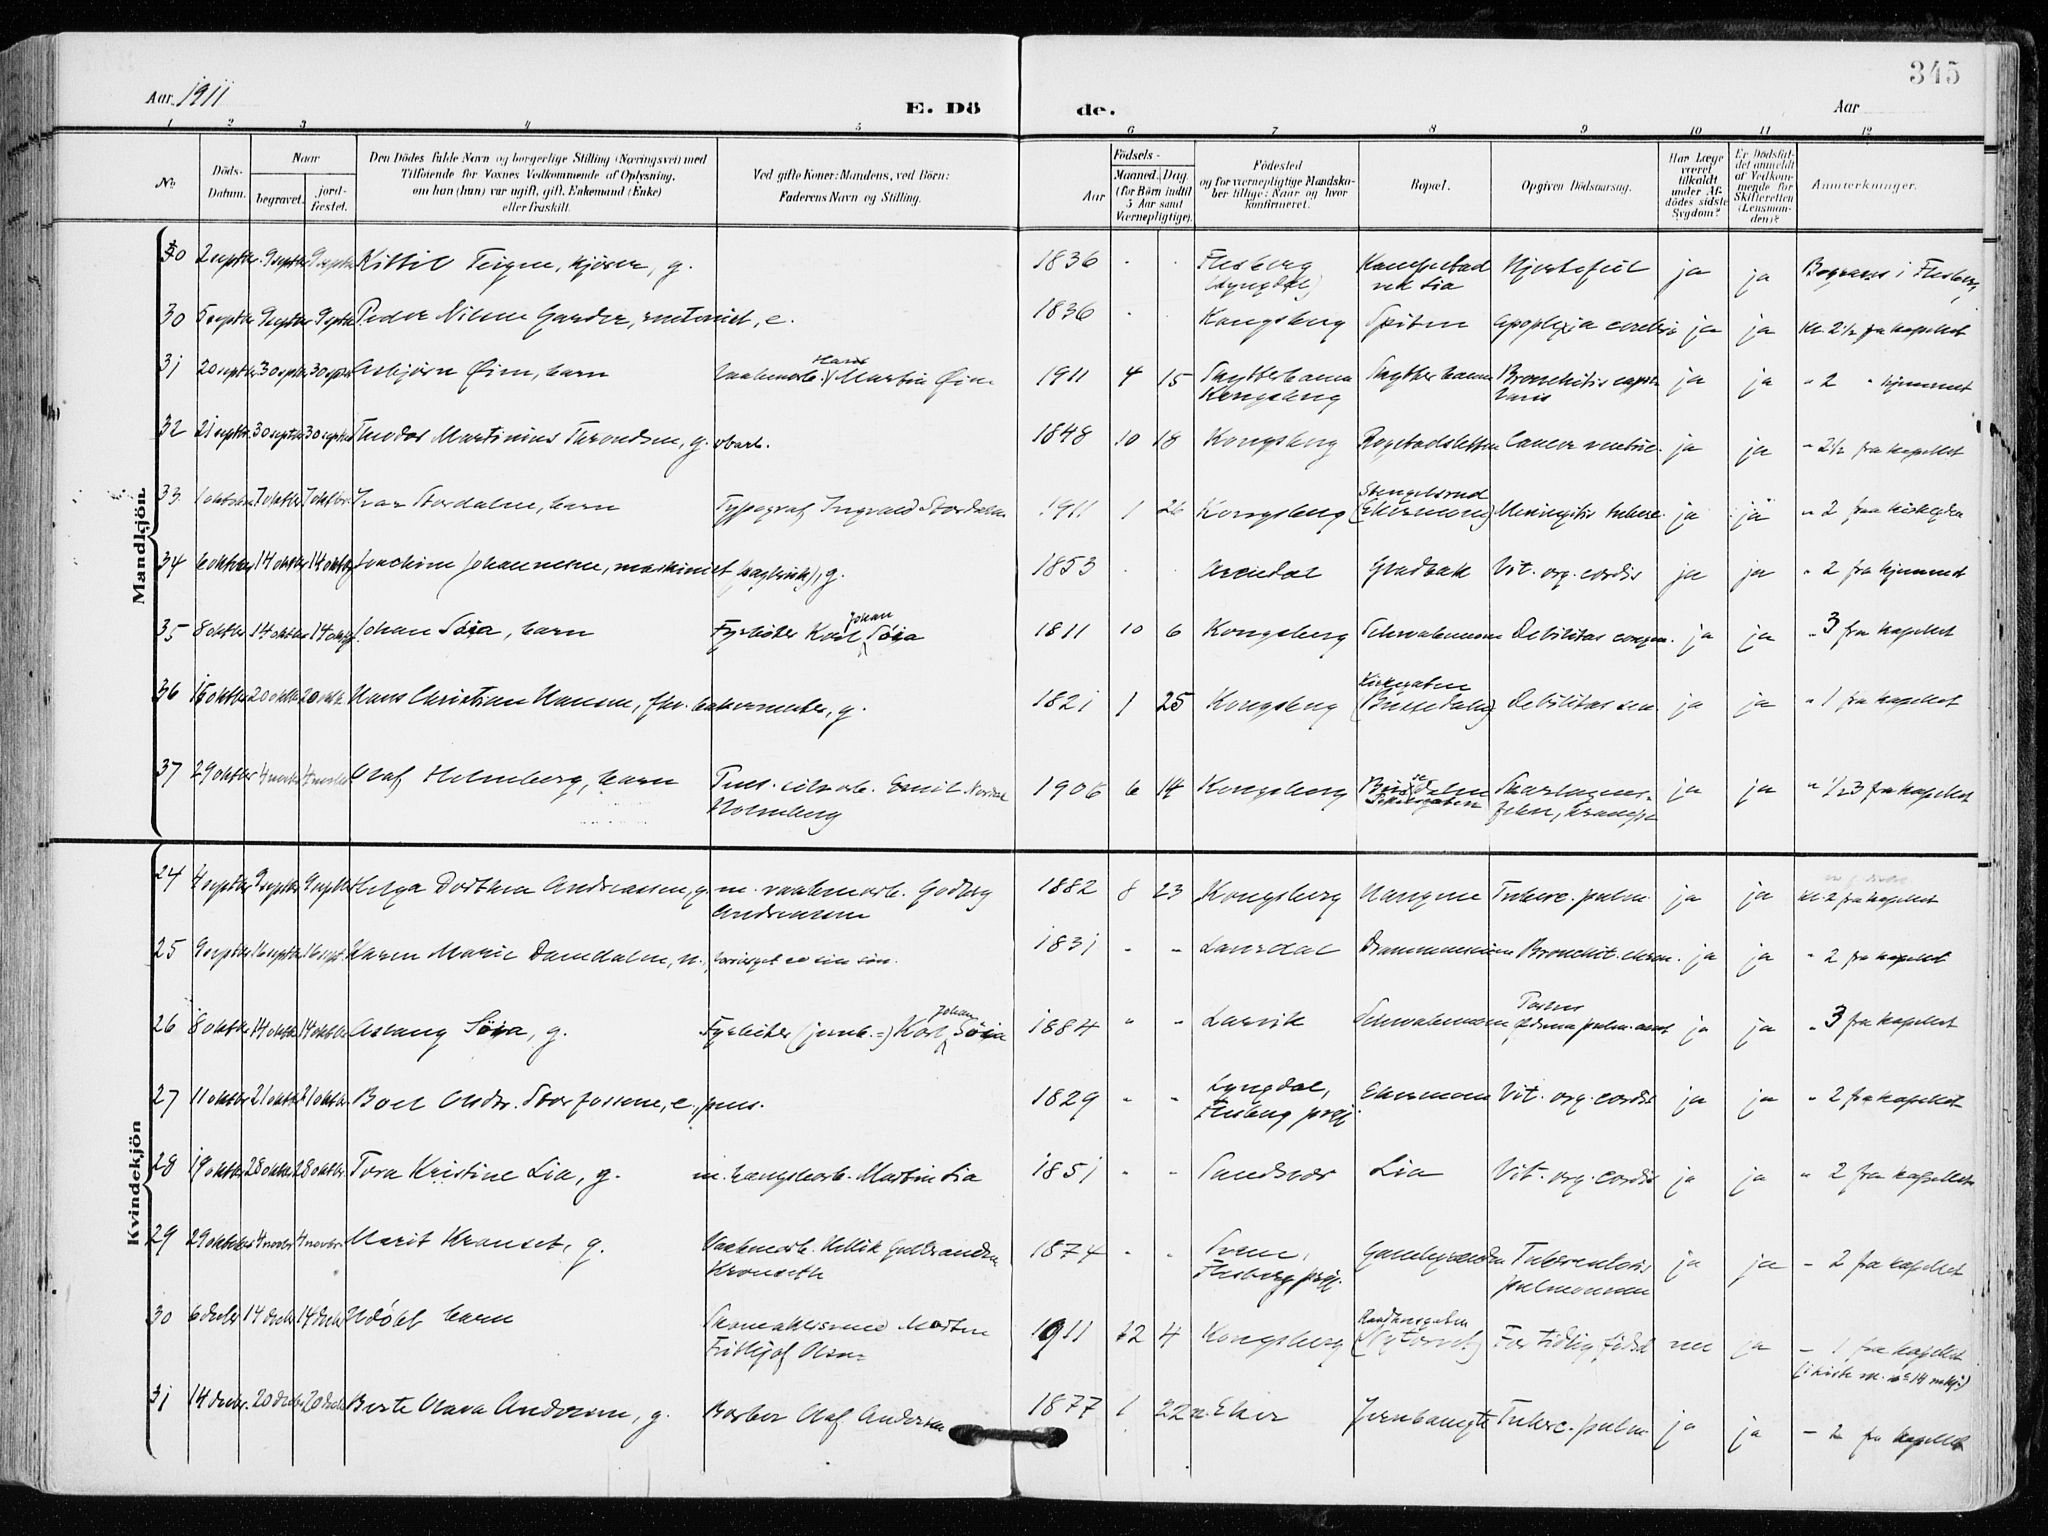 345
Aar 1911
E. Dö de.
Aar
1 2 3 4 5 6 7 8 9 10 11 12
No. Döds-Datum. Naar begravet. jord-fæstet. Den Dödes fulde Navn og borgerlige Stilling (Næringsvei) med Tilföiende for Voxnes Vedkommende af Oplysning, om han (hun) var ugift, gift, Enkemand (Enke) eller fraskilt. Ved gifte Koner: Mandens, ved Börn: Faderens Navn og Stilling. Födsels- Aar Maaned. Dag. (for Börn indtil 5 Aar samt Værnepligtige). Födested og for værnepligtige Mandskaber tillige: Naar og hvor konfirmeret. Bopæl. Opgiven Dödsaarsag. Har Læge været tilkaldt under Afdödes sidste Sygdom? Er Dödsfaldet anmeldt af Vedkommende for Skifteretten (Lensmanden)? Anmærkninger.
Mandkjön
30 2 septbr. 9 septbr 9 septbr Kittil Teigen, kjører, g. 1836 . . Flesberg (Lyngdal) ved Lia Hjertefeil ja ja Begraves i Flesberg
30 5 septbr 9 septbr 9 septbr Peder Nilsen Garder, e. 1836 . . Kongsberg Spiten apoplexia cerebri ja ja Kl. 2 1/2 fra kapellet
31 20 septbr 30 septbr 30 septbr Asbjørn Øien, barn Vaabenarb. Hans Martin Øien 1911 4 15 Kongsberg Bronchitis capillaris ja ja " 2 " hjemmet
32 21 septbr 30 septbr 30 septbr Theodor Martinius Throndsen, g. 1848 10 18 Kongsberg Cancer ventric. ja ja " 2 1/2 fra kapellet
33 1 oktober 7 oktbr 7 oktbr Ivar Stordalen, barn Typograf Ingvald Stordalen 1911 1 26 Kongsberg Stengelsrud (Ekermoen) Meningitis tuberc. ja ja " 2 fra
34 6 oktbr 14 oktbr 14 oktbr Joachim Johannesen, maskinist (sagbruk), g. 1853 . . Arendal Gladbak Vit. org. cordis ja ja " 2 fra hjemmet
35 8 oktbr 14 oktbr 14 oktbr Johan Søia, barn Fyrbøter Karl Johan Søia 1811 10 6 Kongsberg Schwabemoen Debilitas congen. ja ja " 3 fra kapellet
36 16 oktbr 20 oktbr 20 oktbr. Hans Christian Hansen, fhv. bakermester, g. 1821 1 25 Kongsberg Kirkegaten Debilitas sen. ja ja " 1 fra kapellet
37 29 oktbr 4 novbr 4 novbr Olaf Holmberg, barn Emil Holmberg 1906 6 14 Kongsberg Skarlagensfeber, ja ja " 1/2 3 fra kapellet
Kvindekjön
24 4 septbr 9 septbr 9 septbr Helga Dorthea Andreassen, g. m. vaabenarb. Gotberg Andreassen 1882 8 23 Kongsberg Haugene Tuberc. pulm. ja ja Kl. 2 fra kapellet
25 9 septbr 16 septbr 16 sept. Karen Marie Damdalen, forsørget av sin søn. 1831 " " Laurdal Drammensveien Bronchit. chron. ja ja " 2 fra kapellet
26 8 oktbr 14 oktbr 14 oktbr Aslaug Søia, g. Fyrbøter (jernb.-) Karl Johan Søia 1884 " " Larvik Schwabemoen Partus Ødema pulm. acut ja ja " 3 fra kapellet
27 11 oktbr 21 oktbr 21 oktbr. Boel Andr. Storfossene, e., pens. 1829 " " Lyngdal, Flesberg prgj. Ekermoen Vit. org. cordis ja ja " 2 fra kapellet
28 19 oktbr 28 oktbr 28 oktbr. Tora Kristine Lia, g. m. Martin Lia 1851 " " Sandsvær Lia Vit. org. cordis ja ja " 2 fra kapellet
29 29 oktober 4 novbr 4 novbr. Marit Kronset, g. Vaabenarb. Hellik Gulbrandsen Kronseth 1874 " " Svene, Flesberg prgj. Tuberculosis pulmonum ja ja - 2 fra kapellet
30 6 decbr 14 decbr 14 decbr Udøbt barn Skomakersvend Morten Frithjof Olsen 1911 12 4 Kongsberg (Nytorvet) For tidlig født nei ja - 1 fra kapellet
31 14 decbr. 20 decbr 20 decbr Berte Olava Andersen, g. Barber Olaf Andersen 1877 1 22 n. Eker Tuberc. pulm. ja ja - 2 fra kapellet